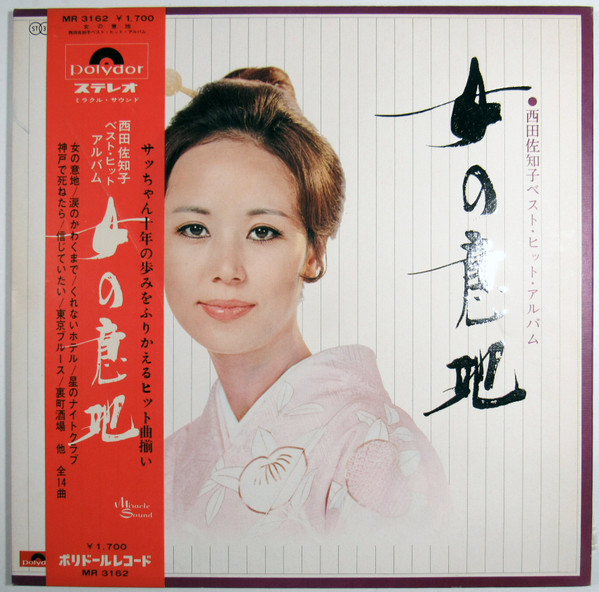 MR 3162 ¥1,700
女の意地
西田佐知子ベスト・ヒット・アルバム
Polydor
ステレオ
ミラクル・サウンド
西田佐知子
ベスト・ヒット
アルバム
女の意地
サッちゃん十年の歩みをふりかえるヒット曲揃い
女の意地/涙のかわくまで/くれないホテル/星のナイトクラブ
神戸で死ねたら/信じていたい/東京ブルース/裏町酒場 他 全14曲
Miracle
Sound
¥1,700
ポリドールレコード
MR 3162
●西田佐知子ベスト・ヒット・アルバム
女の意地
Polydor